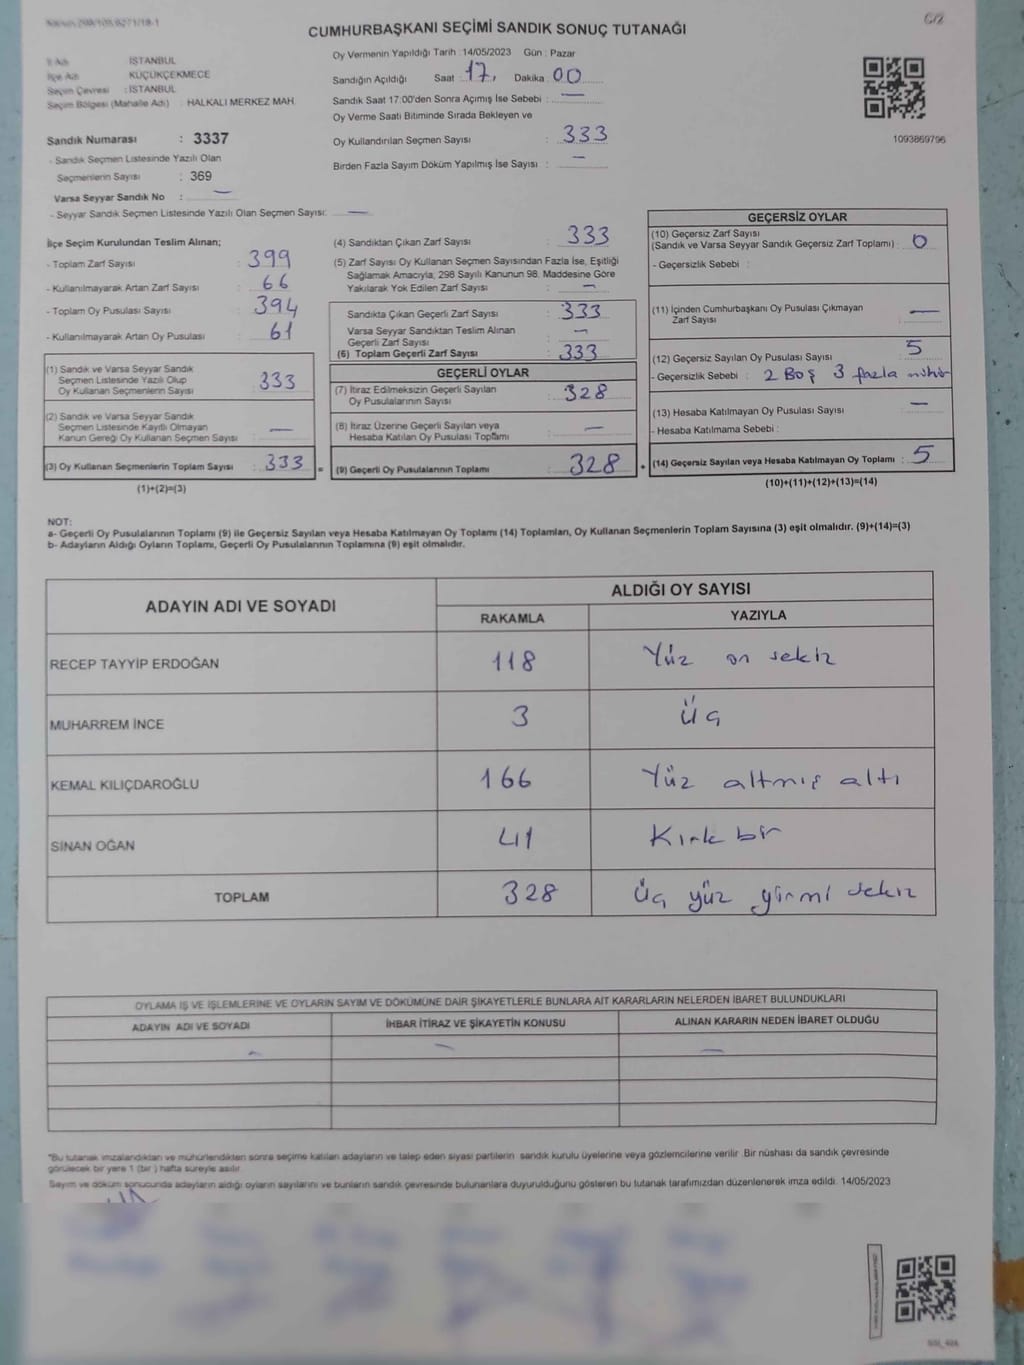 CUMHURBAŞKANI SEÇİMİ SANDIK SONUÇ TUTANAĞI
6/2
İl Adı : İSTANBUL
İlçe Adı : KÜÇÜKÇEKMECE
Seçim Çevresi : İSTANBUL
Seçim Bölgesi (Mahalle Adı) : HALKALI MERKEZ MAH.
Sandık Numarası : 3337
- Sandık Seçmen Listesinde Yazılı Olan
Seçmenlerin Sayısı : 369
Varsa Seyyar Sandık No : —
- Seyyar Sandık Seçmen Listesinde Yazılı Olan Seçmen Sayısı: —
Oy Vermenin Yapıldığı Tarih : 14/05/2023 Gün : Pazar
Sandığın Açıldığı Saat : 17, Dakika : 00
Sandık Saat 17:00'den Sonra Açımış İse Sebebi : —
Oy Verme Saati Bitiminde Sırada Bekleyen ve
Oy Kullandırılan Seçmen Sayısı : 333
Birden Fazla Sayım Döküm Yapılmış İse Sayısı : —
1093869796
İlçe Seçim Kurulundan Teslim Alınan;
- Toplam Zarf Sayısı : 399
- Kullanılmayarak Artan Zarf Sayısı : 66
- Toplam Oy Pusulası Sayısı : 394
- Kullanılmayarak Artan Oy Pusulası : 61
(1) Sandık ve Varsa Seyyar Sandık
Seçmen Listesinde Yazılı Olup
Oy Kullanan Seçmenlerin Sayısı : 333
(2) Sandık ve Varsa Seyyar Sandık
Seçmen Listesinde Kayıtlı Olmayan
Kanun Gereği Oy Kullanan Seçmen Sayısı : —
(3) Oy Kullanan Seçmenlerin Toplam Sayısı : 333 =
(1)+(2)=(3)
(4) Sandıktan Çıkan Zarf Sayısı : 333
(5) Zarf Sayısı Oy Kullanan Seçmen Sayısından Fazla İse, Eşitliği
Sağlamak Amacıyla, 298 Sayılı Kanunun 98. Maddesine Göre
Yakılarak Yok Edilen Zarf Sayısı : —
Sandıkta Çıkan Geçerli Zarf Sayısı : 333
Varsa Seyyar Sandıktan Teslim Alınan
Geçerli Zarf Sayısı : —
(6) Toplam Geçerli Zarf Sayısı : 333
GEÇERLİ OYLAR
(7) İtiraz Edilmeksizin Geçerli Sayılan
Oy Pusulalarının Sayısı : 328
(8) İtiraz Üzerine Geçerli Sayılan veya
Hesaba Katılan Oy Pusulası Toplamı : —
(9) Geçerli Oy Pusulalarının Toplamı : 328 +
GEÇERSİZ OYLAR
(10) Geçersiz Zarf Sayısı
(Sandık ve Varsa Seyyar Sandık Geçersiz Zarf Toplamı) : 0
- Geçersizlik Sebebi :
(11) İçinden Cumhurbaşkanı Oy Pusulası Çıkmayan
Zarf Sayısı : —
(12) Geçersiz Sayılan Oy Pusulası Sayısı : 5
- Geçersizlik Sebebi : 2 Boş 3 fazla mühür
(13) Hesaba Katılmayan Oy Pusulası Sayısı : —
- Hesaba Katılmama Sebebi :
(14) Geçersiz Sayılan veya Hesaba Katılmayan Oy Toplamı : 5
(10)+(11)+(12)+(13)=(14)
NOT:
a- Geçerli Oy Pusulalarının Toplamı (9) ile Geçersiz Sayılan veya Hesaba Katılmayan Oy Toplamı (14) Toplamları, Oy Kullanan Seçmenlerin Toplam Sayısına (3) eşit olmalıdır. (9)+(14)=(3)
b- Adayların Aldığı Oyların Toplamı, Geçerli Oy Pusulalarının Toplamına (9) eşit olmalıdır.
ADAYIN ADI VE SOYADI
ALDIĞI OY SAYISI
RAKAMLA YAZIYLA
RECEP TAYYİP ERDOĞAN 118 Yüz on sekiz
MUHARREM İNCE 3 Üç
KEMAL KILIÇDAROĞLU 166 Yüz altmış altı
SİNAN OĞAN 41 Kırk bir
TOPLAM 328 Üç yüz yirmi sekiz
OYLAMA İŞ VE İŞLEMLERİNE VE OYLARIN SAYIM VE DÖKÜMÜNE DAİR ŞİKAYETLERLE BUNLARA AİT KARARLARIN NELERDEN İBARET BULUNDUKLARI
ADAYIN ADI VE SOYADI İHBAR İTİRAZ VE ŞİKAYETİN KONUSU ALINAN KARARIN NEDEN İBARET OLDUĞU
— — —
"Bu tutanak imzalandıktan ve mühürlendikten sonra seçime katılan adayların ve talep eden siyasi partilerin sandık kurulu üyelerine veya gözlemcilerine verilir. Bir nüshası da sandık çevresinde
görülecek bir yere 1 (bir) hafta süreyle asılır.
Sayım ve döküm sonucunda adayların aldığı oyların sayılarını ve bunların sandık çevresinde bulunanlara duyurulduğunu gösteren bu tutanak tarafımızdan düzenlenerek imza edildi. 14/05/2023